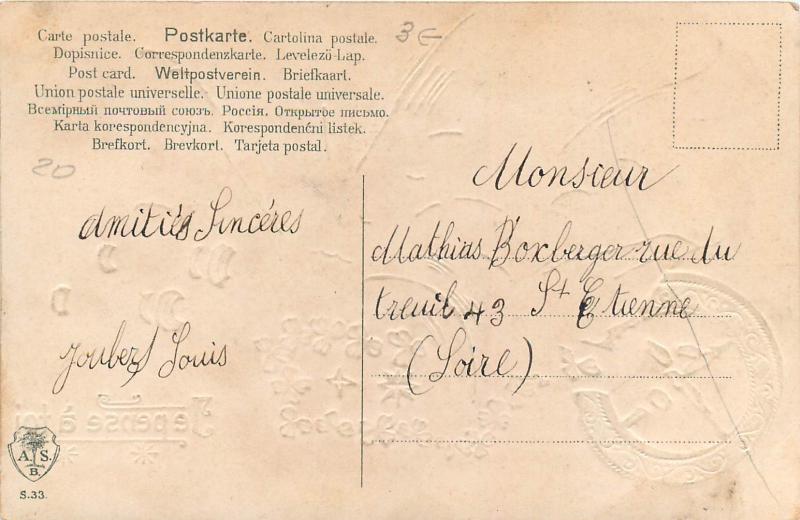 Carte postale. Postkarte. Cartolina postale.
Dopisnice. Correspondenzkarte. Levelező-Lap.
Post card. Weltpostverein. Briefkaart.
Union postale universelle. Unione postale universale.
Всемірный почтовый союзъ. Россія. Открытое письмо.
Karta korespondencyjna. Korespondenční listek.
Brefkort. Brevkort. Tarjeta postal.
3 €
20
amitiés Sincéres
Joubert Louis
Monsieur
Mathias Boxberger rue du
treuil 43 St Etienne
(Loire)
Je pense à toi
A. S.
B.
S.33.